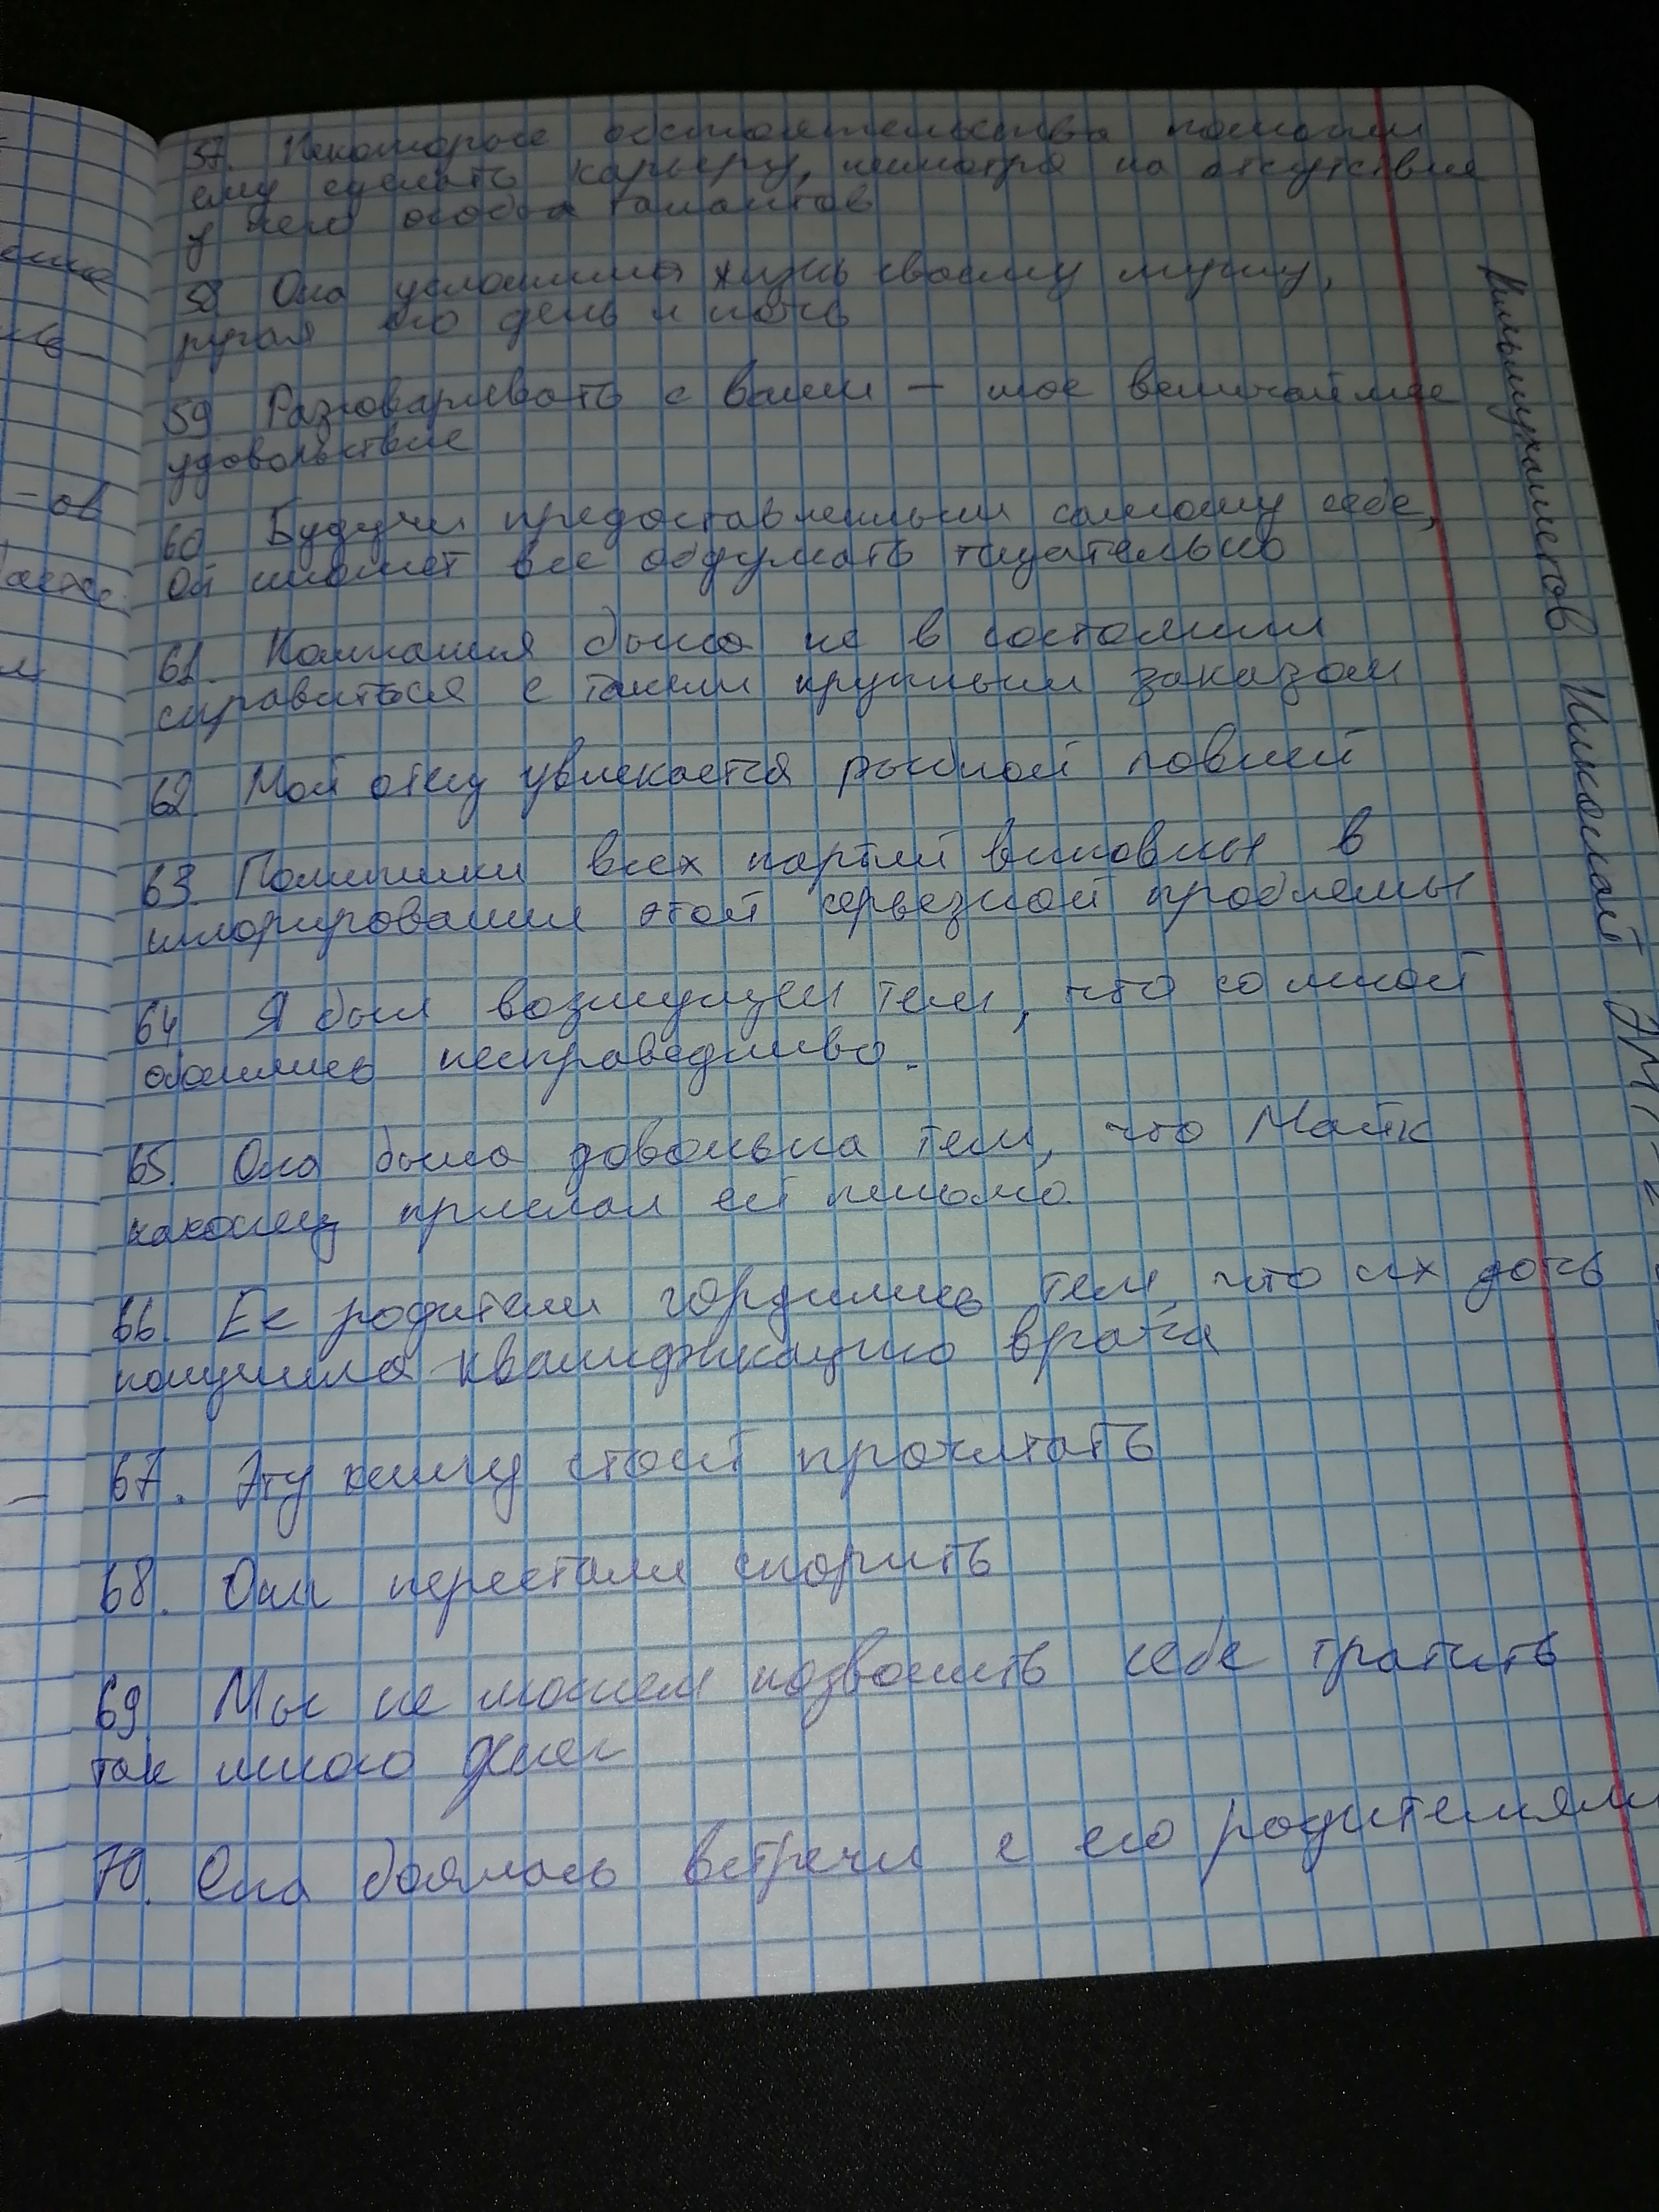 57. Некоторые обстоятельства помогли
ему сделать карьеру, несмотря на отсутствие
у него особых талантов
58 Она усложнила жизнь своему мужу,
ругая его день и ночь
59 Разговаривать с вами – мое величайшее
удовольствие
60 Будучи предоставленным самому себе,
он может все обдумать тщательно
61. Компания была не в состоянии
справиться с таким крупным заказом
62. Мой отец увлекается рыбной ловлей
63. Политики всех партий виновны в
игнорировании этой серьезной проблемы
64 Я был возмущен тем, что со мной
обошлись несправедливо.
65. Она была довольна тем, что Майк
наконец прислал ей письмо.
66. Ее родители гордились тем, что их дочь
получила квалификацию врача
67. Эту книгу стоит прочитать
68. Они перестали спорить
69 Мы не можем позволить себе тратить
так много денег
70. Она боялась встречи с его родителями
Николай